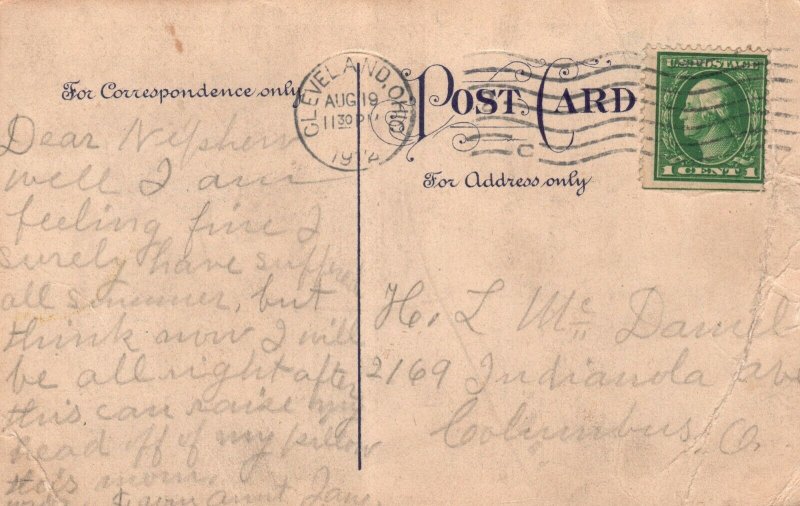 For Correspondence only
POST CARD
For Address only
CLEVELAND, OHIO
AUG 19
11 30 P
C
U.S. POSTAGE
1 CENT 1
Dear Nephew
well I am
feeling fine I
surely have suffered
all summer, but
think now I will
be all right after
this can raise my
head off of my pillow
this morn.
from aunt Jane.
H. L Mc Daniel
2169 Indianola ave
Columbus, O.